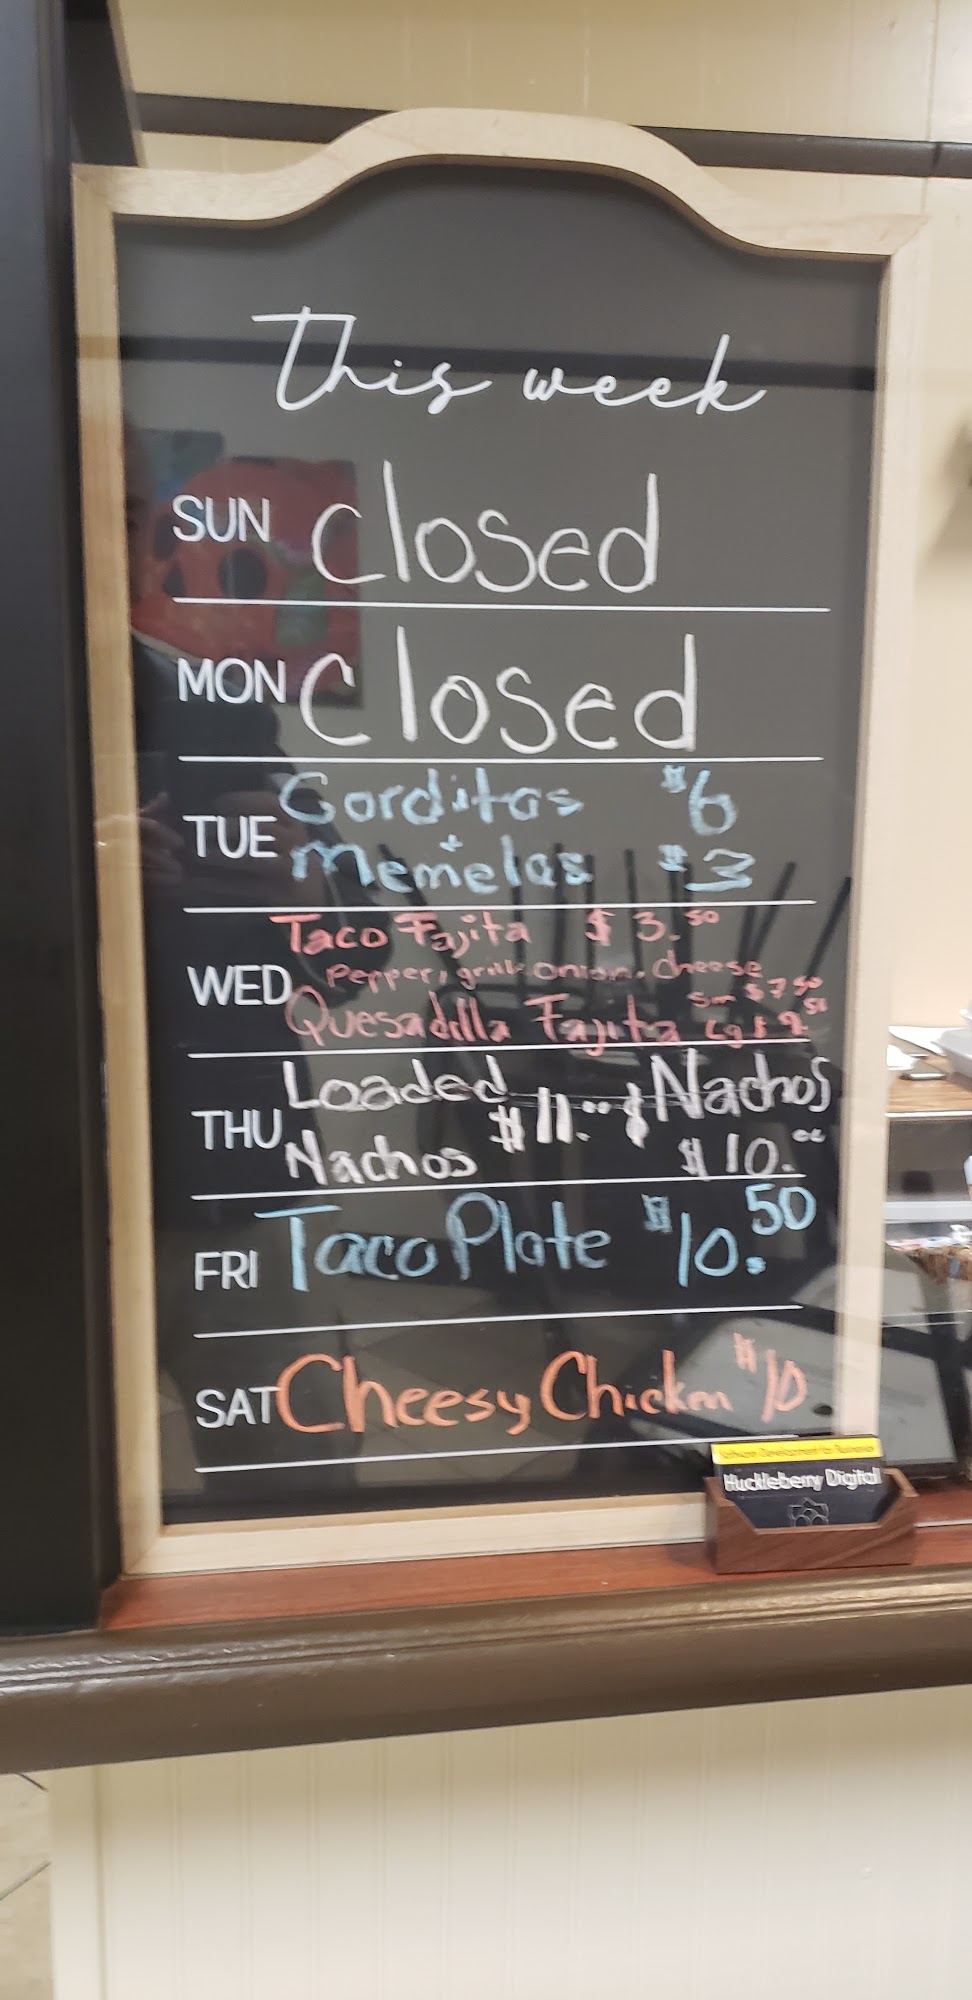 This week
SUN closed
MON closed
TUE Gorditas $6
+
Memelas $3
WED Taco Fajita $3.50
Pepper, grill onion, cheese
Quesadilla Fajita Sm $7.50 Lg $9.50
THU Loaded Nachos $11.00 $ Nachos $10.00
FRI Taco Plate $10.50
SAT Cheesy Chicken $10
Software Development for Businesses
Huckleberry Digital